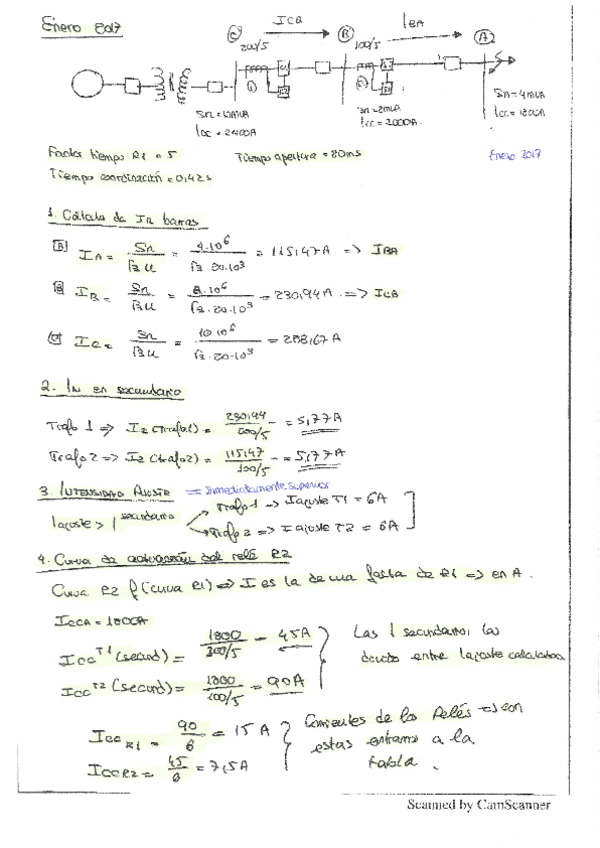 Enero 2017
ICB
IBA
C
B
A
200/5
100/5
Sn = 10MVA
Icc = 2400A
Sn = 2MVA
Icc = 2000A
Sn = 4MVA
Icc = 1800A
Factor tiempo R1 = 5
Tiempo apertura = 80ms
Enero 2017
Tiempo coordinación = 0,42s
1. Cálculo de In barras
IA = Sn / √3 U = 4·10⁶ / √3·20·10³ = 115,47A => IBA
IB = Sn / √3 U = 8·10⁶ / √3·20·10³ = 230,94A => ICB
IC = Sn / √3 U = 10·10⁶ / √3·20·10³ = 288,67A
2. IN en secundario
Trafo 1 => I2 (trafo1) = 230,94 / 200/5 = 5,77A
Trafo 2 => I2 (trafo2) = 115,47 / 100/5 = 5,77A
3. Intensidad Ajuste => Inmediatamente superior
Iajuste > I secundario
Trafo 1 => Iajuste T1 = 6A
Trafo 2 => Iajuste T2 = 6A
4. Curva de actuación del relé R2
Curva R2 f(curva R1) => I es la de una falta de R1 => en A.
IccA = 1800A
Icc T1 (secund) = 1800 / 200/5 = 45A
Icc T2 (secund) = 1800 / 100/5 = 90A
Las I secundario, las
divido entre Iajuste calculadas
Icc R1 = 90 / 6 = 15A
Icc R2 = 45 / 6 = 7,5A
Corrientes de los Relés => con
estas entramos a la
tabla.
Scanned by CamScanner